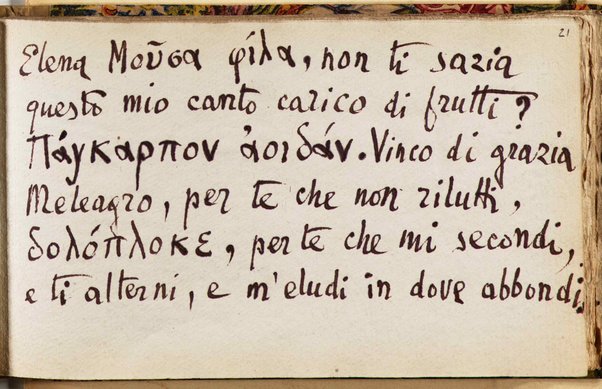 21
Elena Μοῦσα φίλα, non ti sazia
questo mio canto carico di frutti?
Πάγκαρπον ἀοιδάν. Vinco di grazia
Meleagro, per te che non rilutti,
δολόπλοκε, per te che mi secondi,
e ti alterni, e m'eludi in dove abbondi.